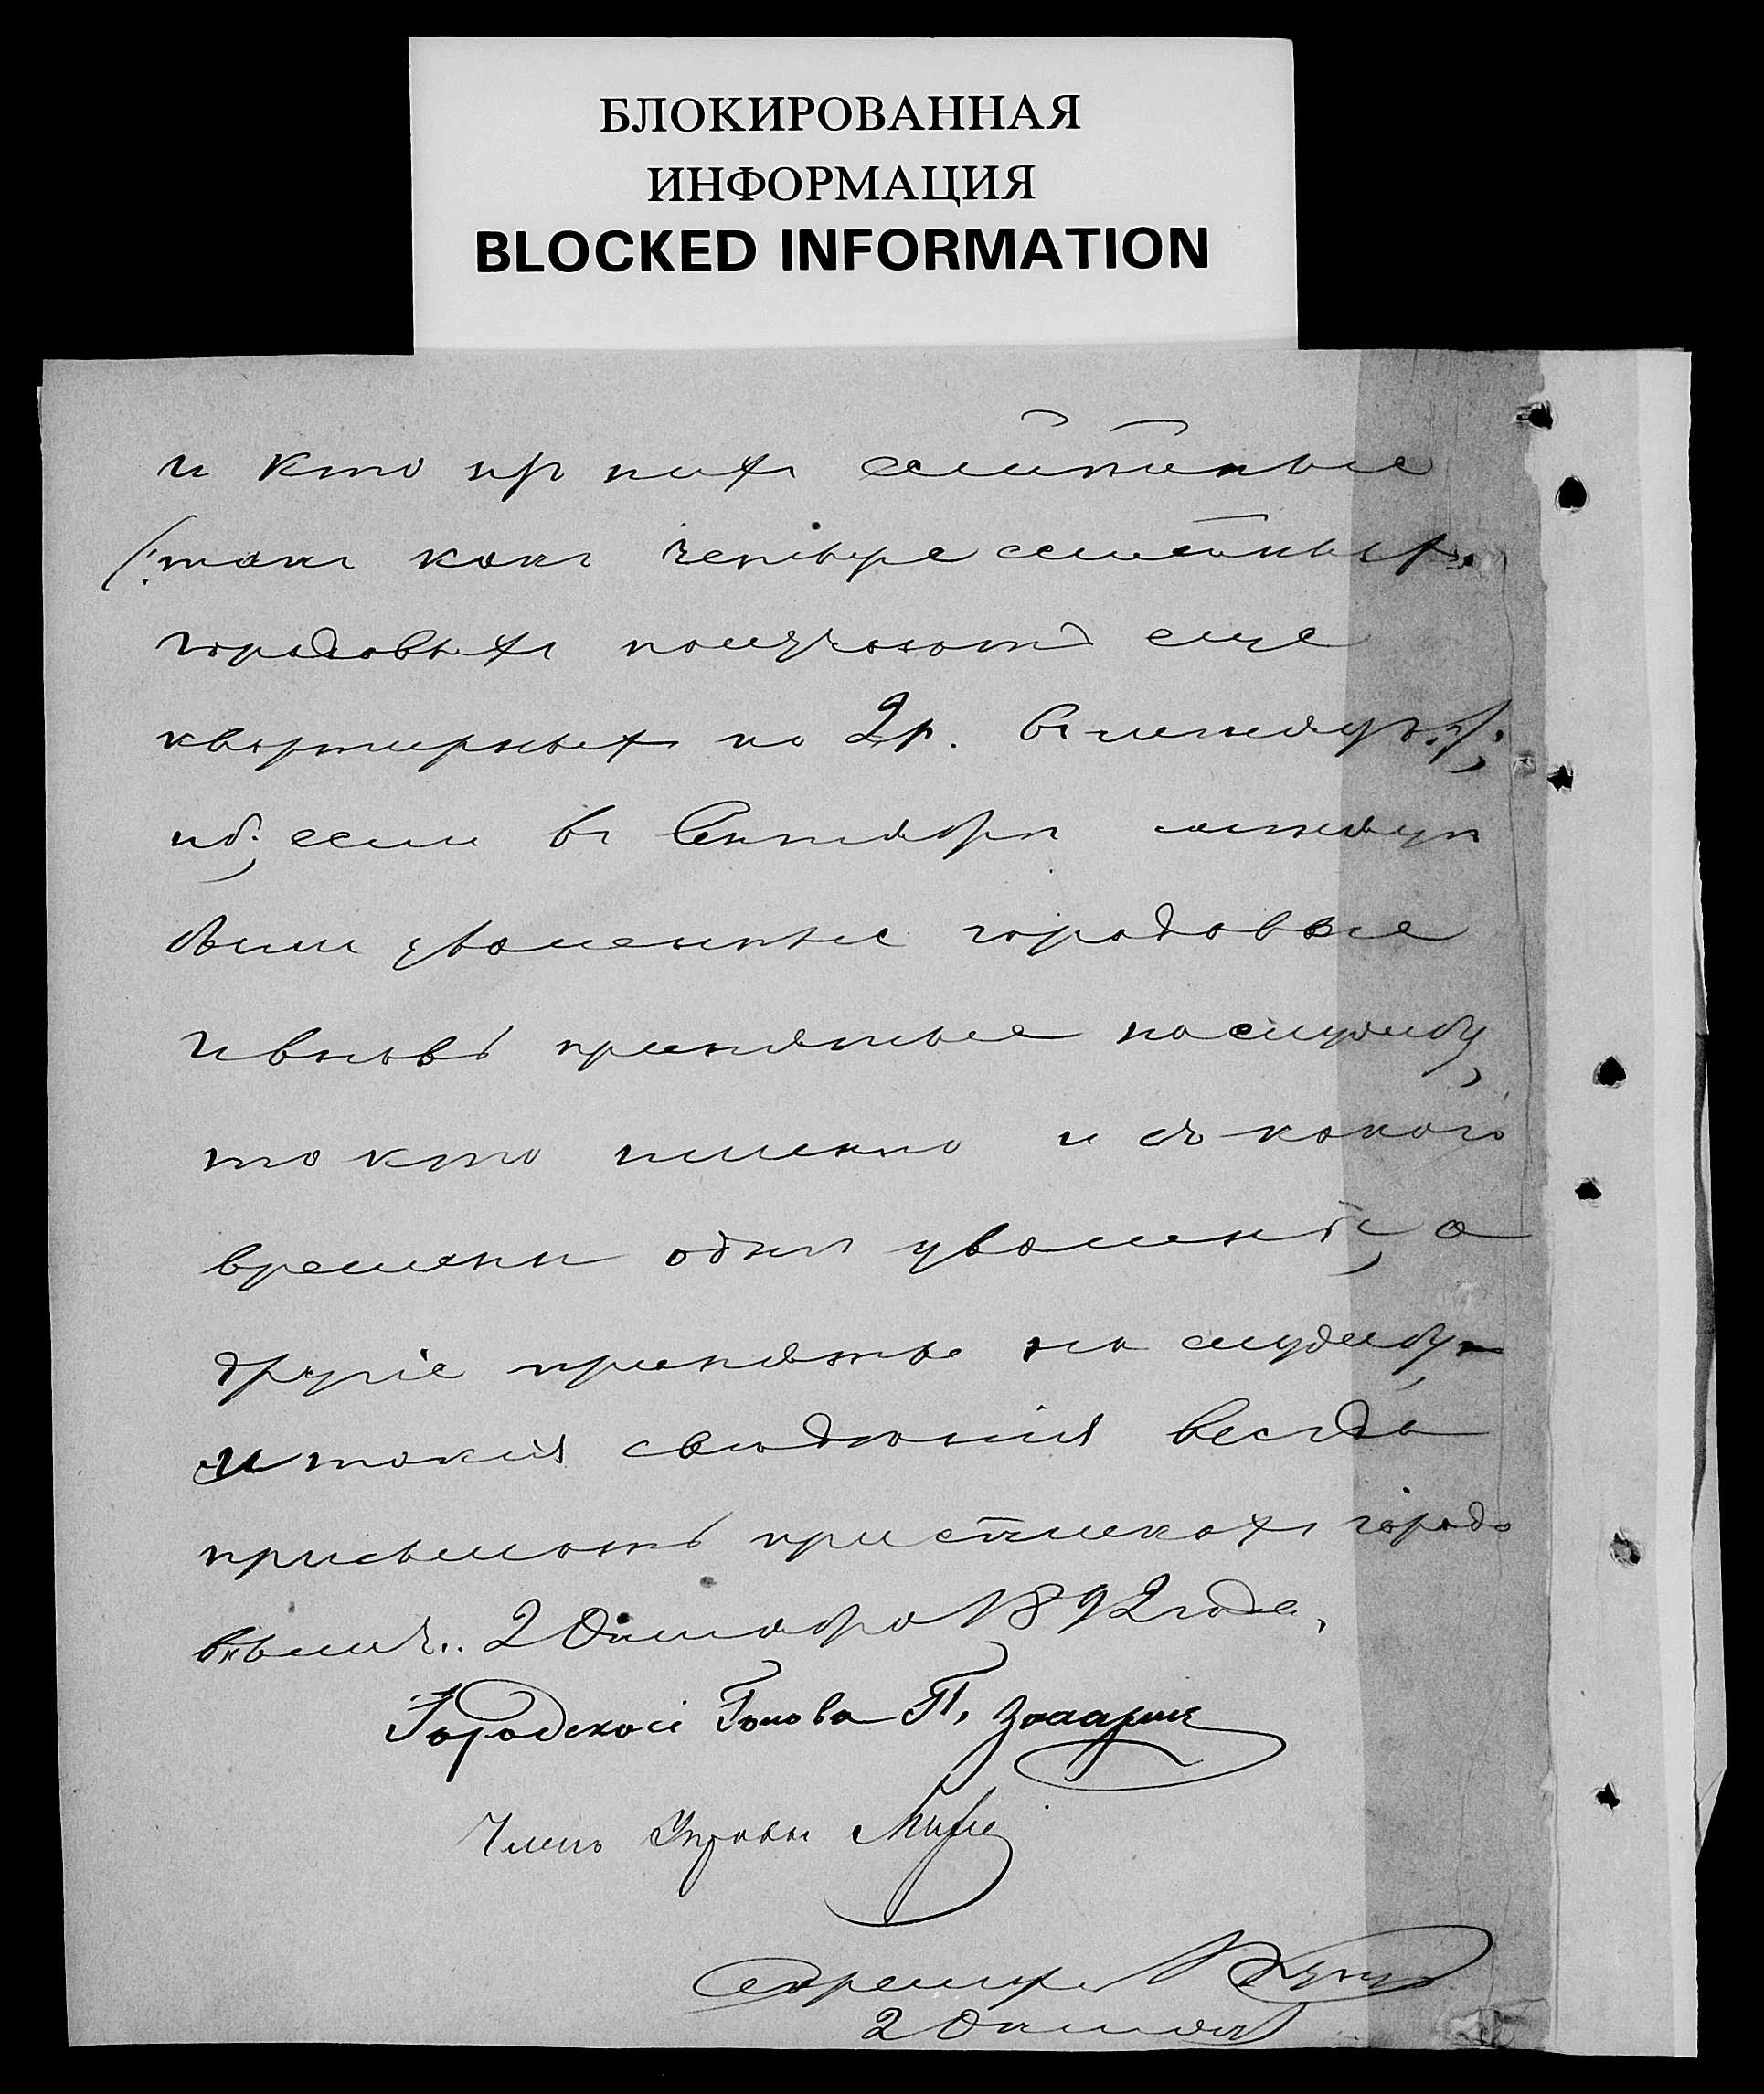 БЛОКИРОВАННАЯ
ИНФОРМАЦИЯ
BLOCKED INFORMATION
и кто изъ нихъ семейные
(такъ какъ четыре семейныхъ
городовыхъ получаютъ еще
квартирныхъ по 2 р. въ месяцъ);
иб, если въ Сентябрѣ месяцѣ
были уволенные городовые
и вновь принятые на службу,
то кто именно и съ какого
времени одни уволены, а
другіе приняты на службу,
и такія свѣдѣнія всегда
присылать при спискахъ городо
выхъ. 2 Октября 1892 года.
Городской Голова П.
Членъ Управы
Секретарь
2 Октября